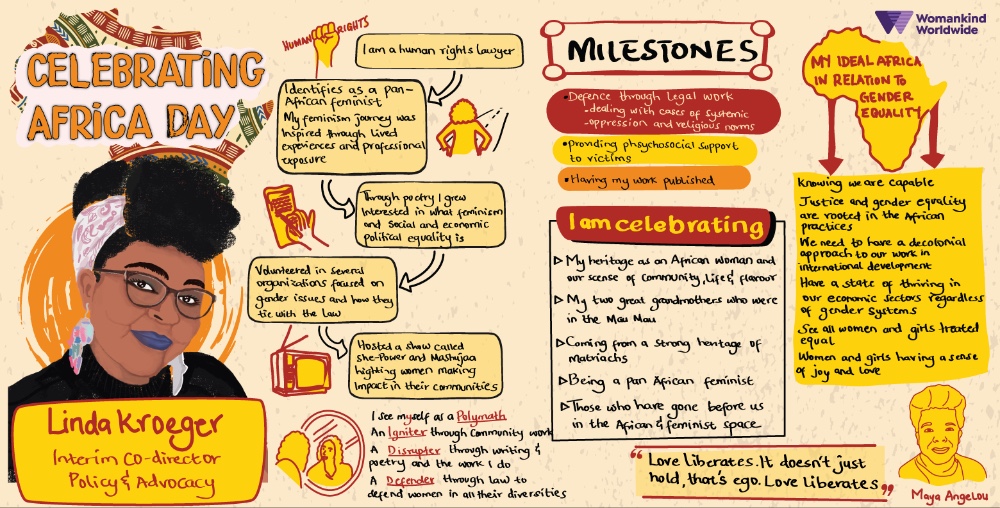 CELEBRATING
AFRICA DAY
Linda Kroeger
Interim Co-director
Policy & Advocacy
HUMAN RIGHTS
I am a human rights lawyer
Identifies as a pan-
African feminist
My feminism journey was
inspired through lived
experiences and professional
exposure
Through poetry I grew
interested in what feminism
and social and economic
political equality is
Volunteered in several
organizations focused on
gender issues and how they
tie with the Law
Hosted a show called
She-Power and Mashujaa
highting women making
impact in their communities
I see myself as a Polymath
An Igniter through Community work
A Disrupter through writing &
poetry and the work I do
A Defender through law to
defend women in all their diversities
MILESTONES
•Defence through legal work
-dealing with cases of systemic
-oppression and religious norms
•Providing phsychosocial support
to victims
•Having my work published
I am celebrating
▷My heritage as an African woman and
our sense of community, Life & flavour
▷My two great grandmothers who were
in the Mau Mau
▷Coming from a strong heritage of
matriachs
▷Being a pan African feminist
▷Those who have gone before us
in the African & feminist space
"Love liberates. It doesn't just
hold, that's ego. Love Liberates"
Womankind
Worldwide
MY IDEAL AFRICA
IN RELATION TO
GENDER
EQUALITY
Knowing we are capable
Justice and gender equality
are rooted in the African
practices
We need to have a decolonial
approach to our work in
international development
Have a state of thriving in
our economic sectors regardless
of gender systems
See all women and girls treated
equal
Women and girls having a sense
of joy and love
Maya Angelou